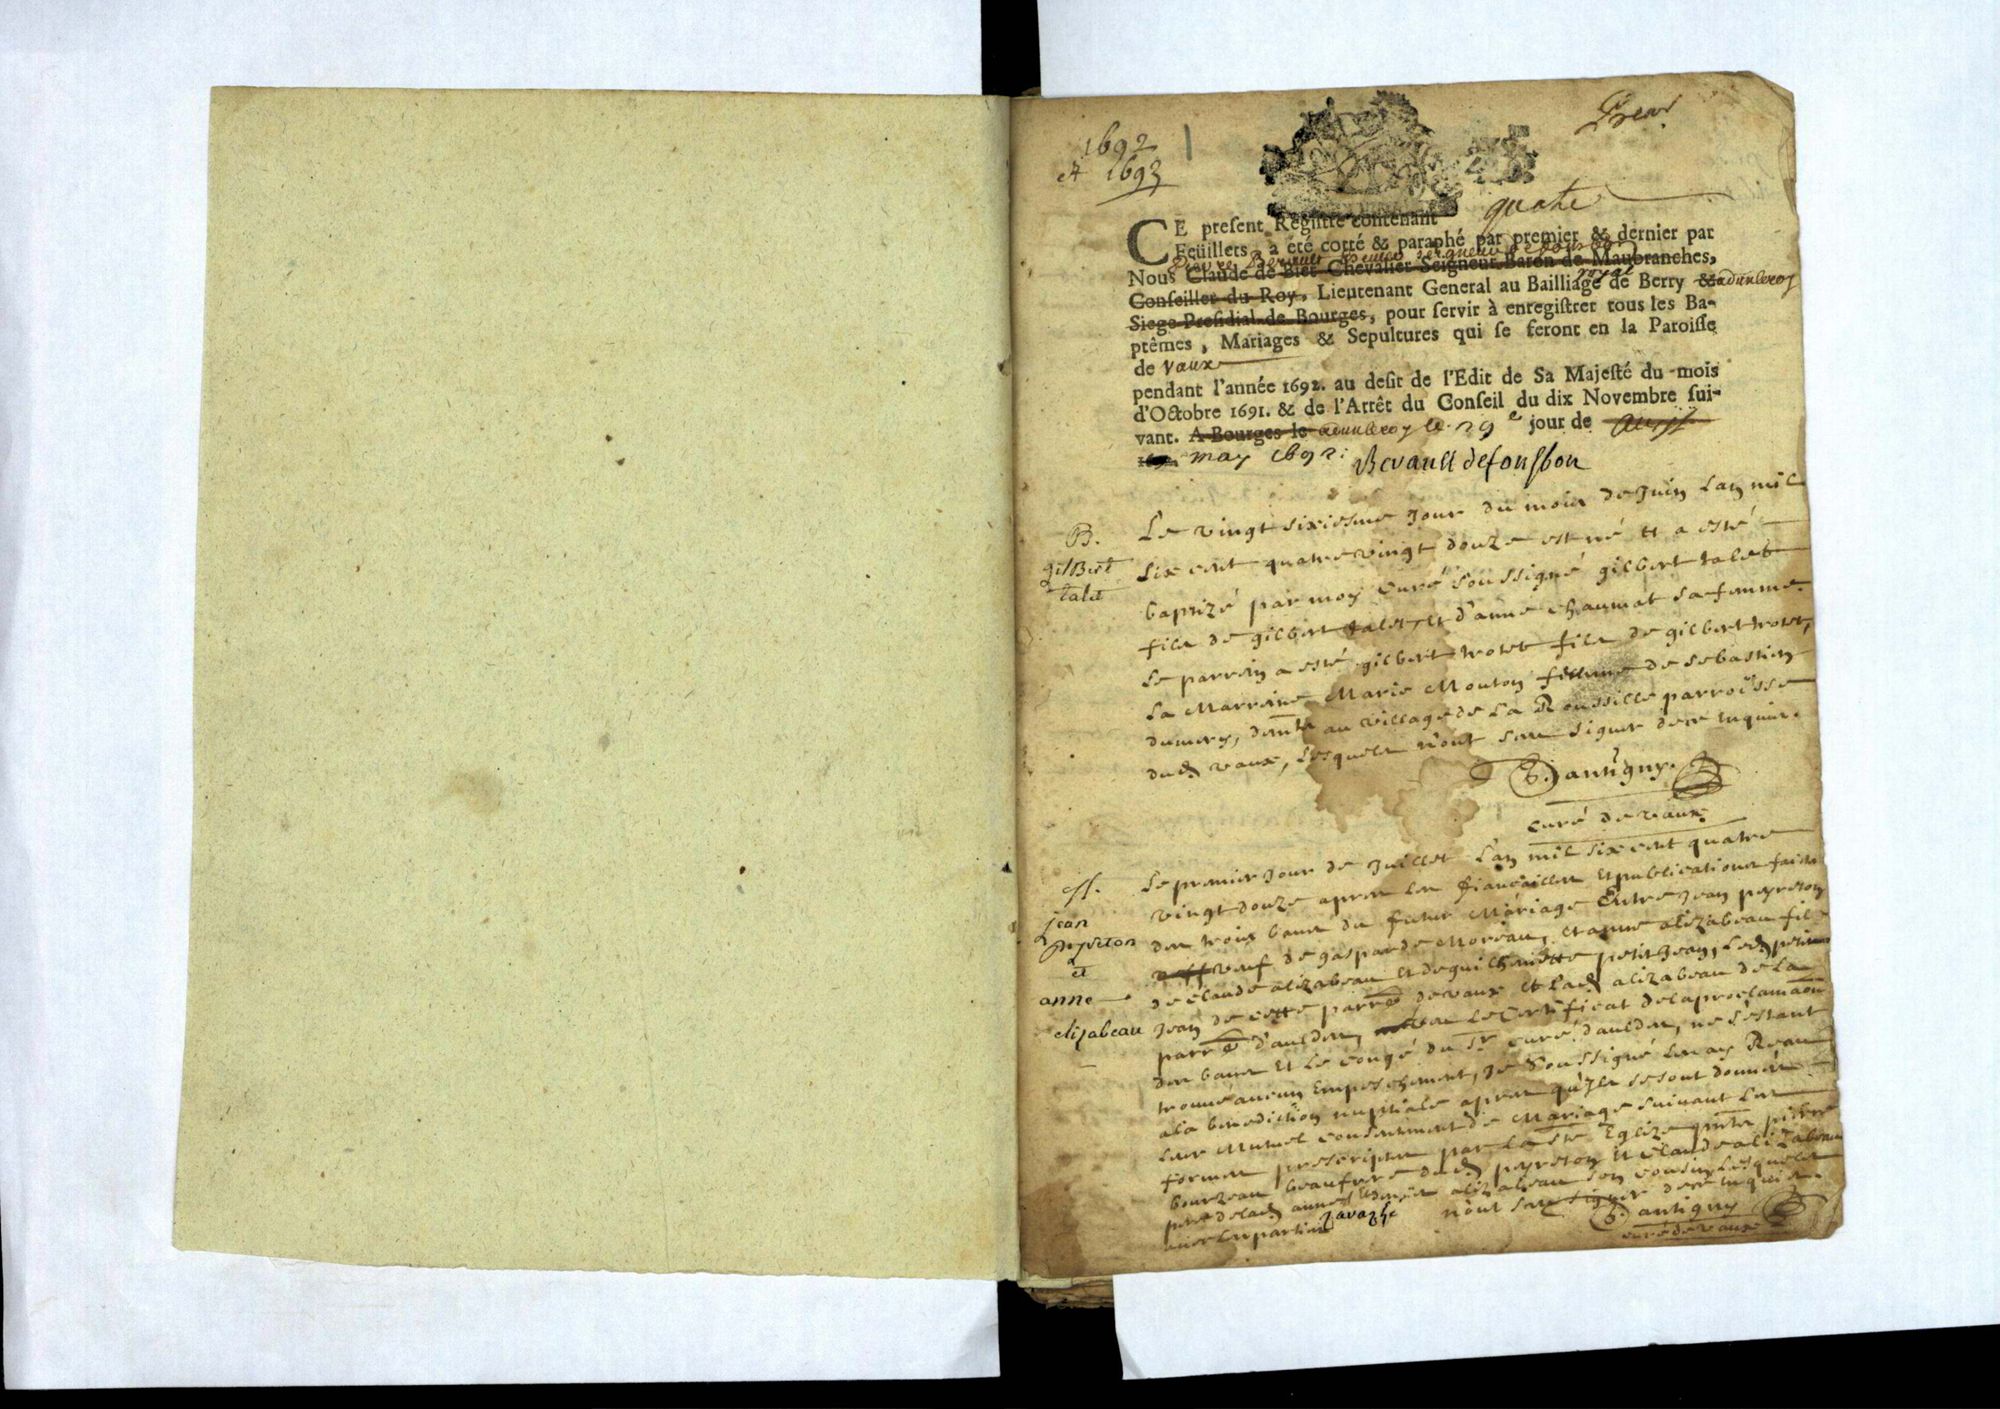 1692
et 1693
1
Prem.r
quatre
CE present Registre contenant
Feüillets, a été cotté & paraphé par premier & dernier par
Nous Claude de Biet Chevalier Seigneur Baron de Maubranches,
Conseiller du Roy, Lieutenant General au Bailliage royal de Berry & adunleroy
Siege Presidial de Bourges, pour servir à enregistrer tous les Ba-
ptêmes, Mariages & Sepultures qui se feront en la Paroisse
de Vaux
pendant l'année 1692. au desir de l'Edit de Sa Majesté du mois
d'Octobre 1691. & de l'Arrêt du Conseil du dix Novembre sui-
vant. A Bourges le adunleroy le 29e jour de
may 1692.
B.
gilbert
talet
Le vingt sixiesme Jour du mois de Juin Lan mil
six cent quatre vingt douze est né et a esté
baptizé par moy Curé soussigné gilbert talet
fils de gilbert talet, et d'anne chaumat sa femme.
Le parrein a esté gilbert trotet fils de gilbert trotet,
La Marreine Marie Mouton femme de sebastien
dumery, dem.ts au village de La Roussille parroisse
dud. vaux, Lesquels n'ont sceu signer de ce enquis.
D. antigny.
curé de vaux.
M.
jean
peyreton
et
anne
elizabeau
Le premier Jour de Juillet Lan mil six cent quatre
vingt douze apres les fiançailles et publications faictes
des trois bans du futur Mariage Entre Jean peyreton
veuf de gasparde Moreau, et anne alizabeau fille
de Claude alizabeau et de guilhemette petit Jean, Led. peyreton
de cette parr.e de vaux et Lad. alizabeau de La
parr.e d'audes, veu Le Certificat de la proclamaon
des bans et Le congé du Sr. curé d'audes, ne s'estant
trouvé aucun Empeschement, Je Soussigné les ay Receu
a la benediction nuptiale apres qu'ils se sont donnés
Leur Mutuel consentement de Mariage suivant Les
formes prescriptes par La Ste Eglize p.nts pierre
bourzeau beaufrere dud. peyreton et Claude alizabeau
pere de lad. anne et alizabeau son cousin Lesquels
avec Les parties n'ont sceu signer de ce enquis.
D. antigny
curé de vaux